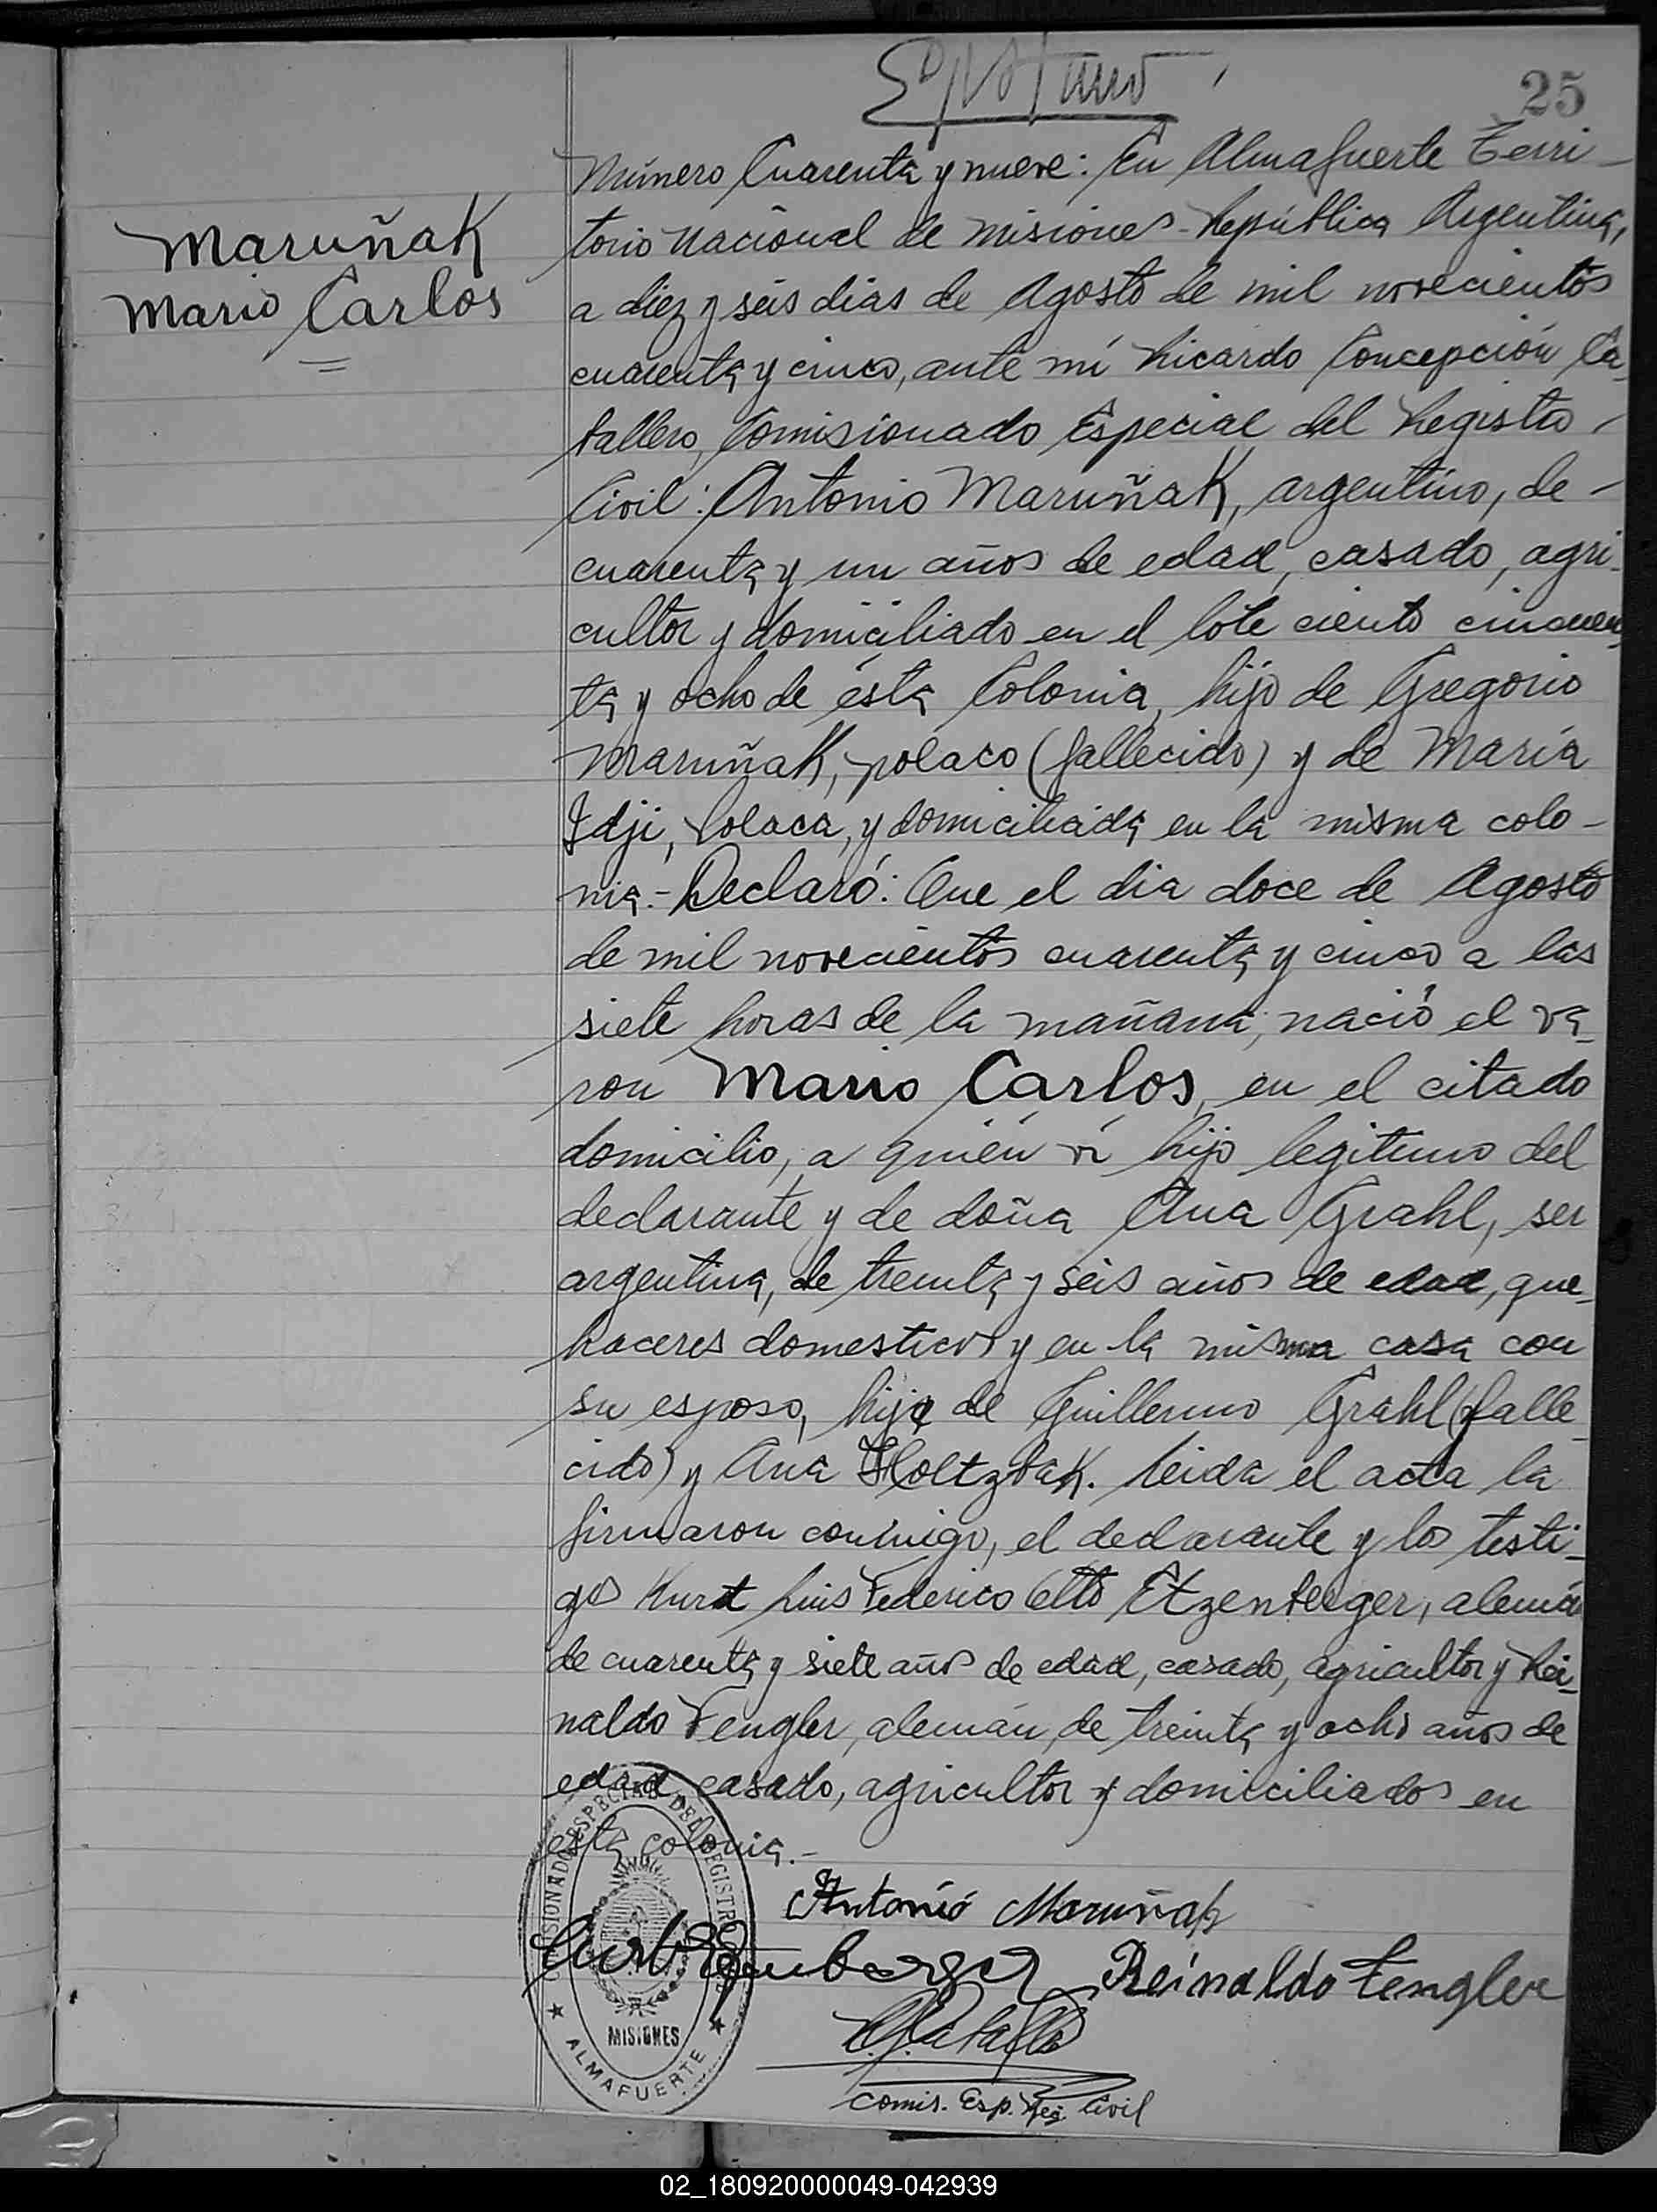 25
Maruñak
Mario Carlos
Número Cuarenta y nueve: En Almafuerte Terri-
torio Nacional de Misiones - República Argentina,
a diez y seis dias de Agosto de mil novecientos
cuarenta y cinco, ante mí Ricardo Concepción Ca-
ballero, Comisionado Especial del Registro
Civil: Antonio Maruñak, argentino, de
cuarenta y un años de edad, casado, agri-
cultor y domiciliado en el lote ciento cincuen-
ta y ocho de ésta Colonia, hijo de Gregorio
Maruñak, polaco (fallecido) y de María
Idji, Polaca, y domiciliada en la misma colo-
nia.- Declaró: Que el dia doce de Agosto
de mil novecientos cuarenta y cinco a las
siete horas de la mañana, nació el va-
ron Mario Carlos, en el citado
domicilio, a quién ví hijo legitimo del
declarante y de doña Ana Grahl, ser
argentina, de treinta y seis años de edad, que-
haceres domesticos y en la misma casa con
su esposo, hija de Guillermo Grahl (falle-
cido) y Ana Holtzbak. Leida el acta la
firmaron conmigo, el declarante y los testi-
gos Kurt Luis Federico Otto Etzenberger, alemán
de cuarenta y siete años de edad, casado, agricultor y Rei-
naldo Fengler, alemán, de treinta y ocho años de
edad, casado, agricultor y domiciliados en
esta colonia.-
Antonio Maruñak
Reinaldo Fengler
Comis. Esp. Reg. Civil
COMISIONADO ESPECIAL DEL REGISTRO
MISIONES
ALMAFUERTE
02_180920000049-042939